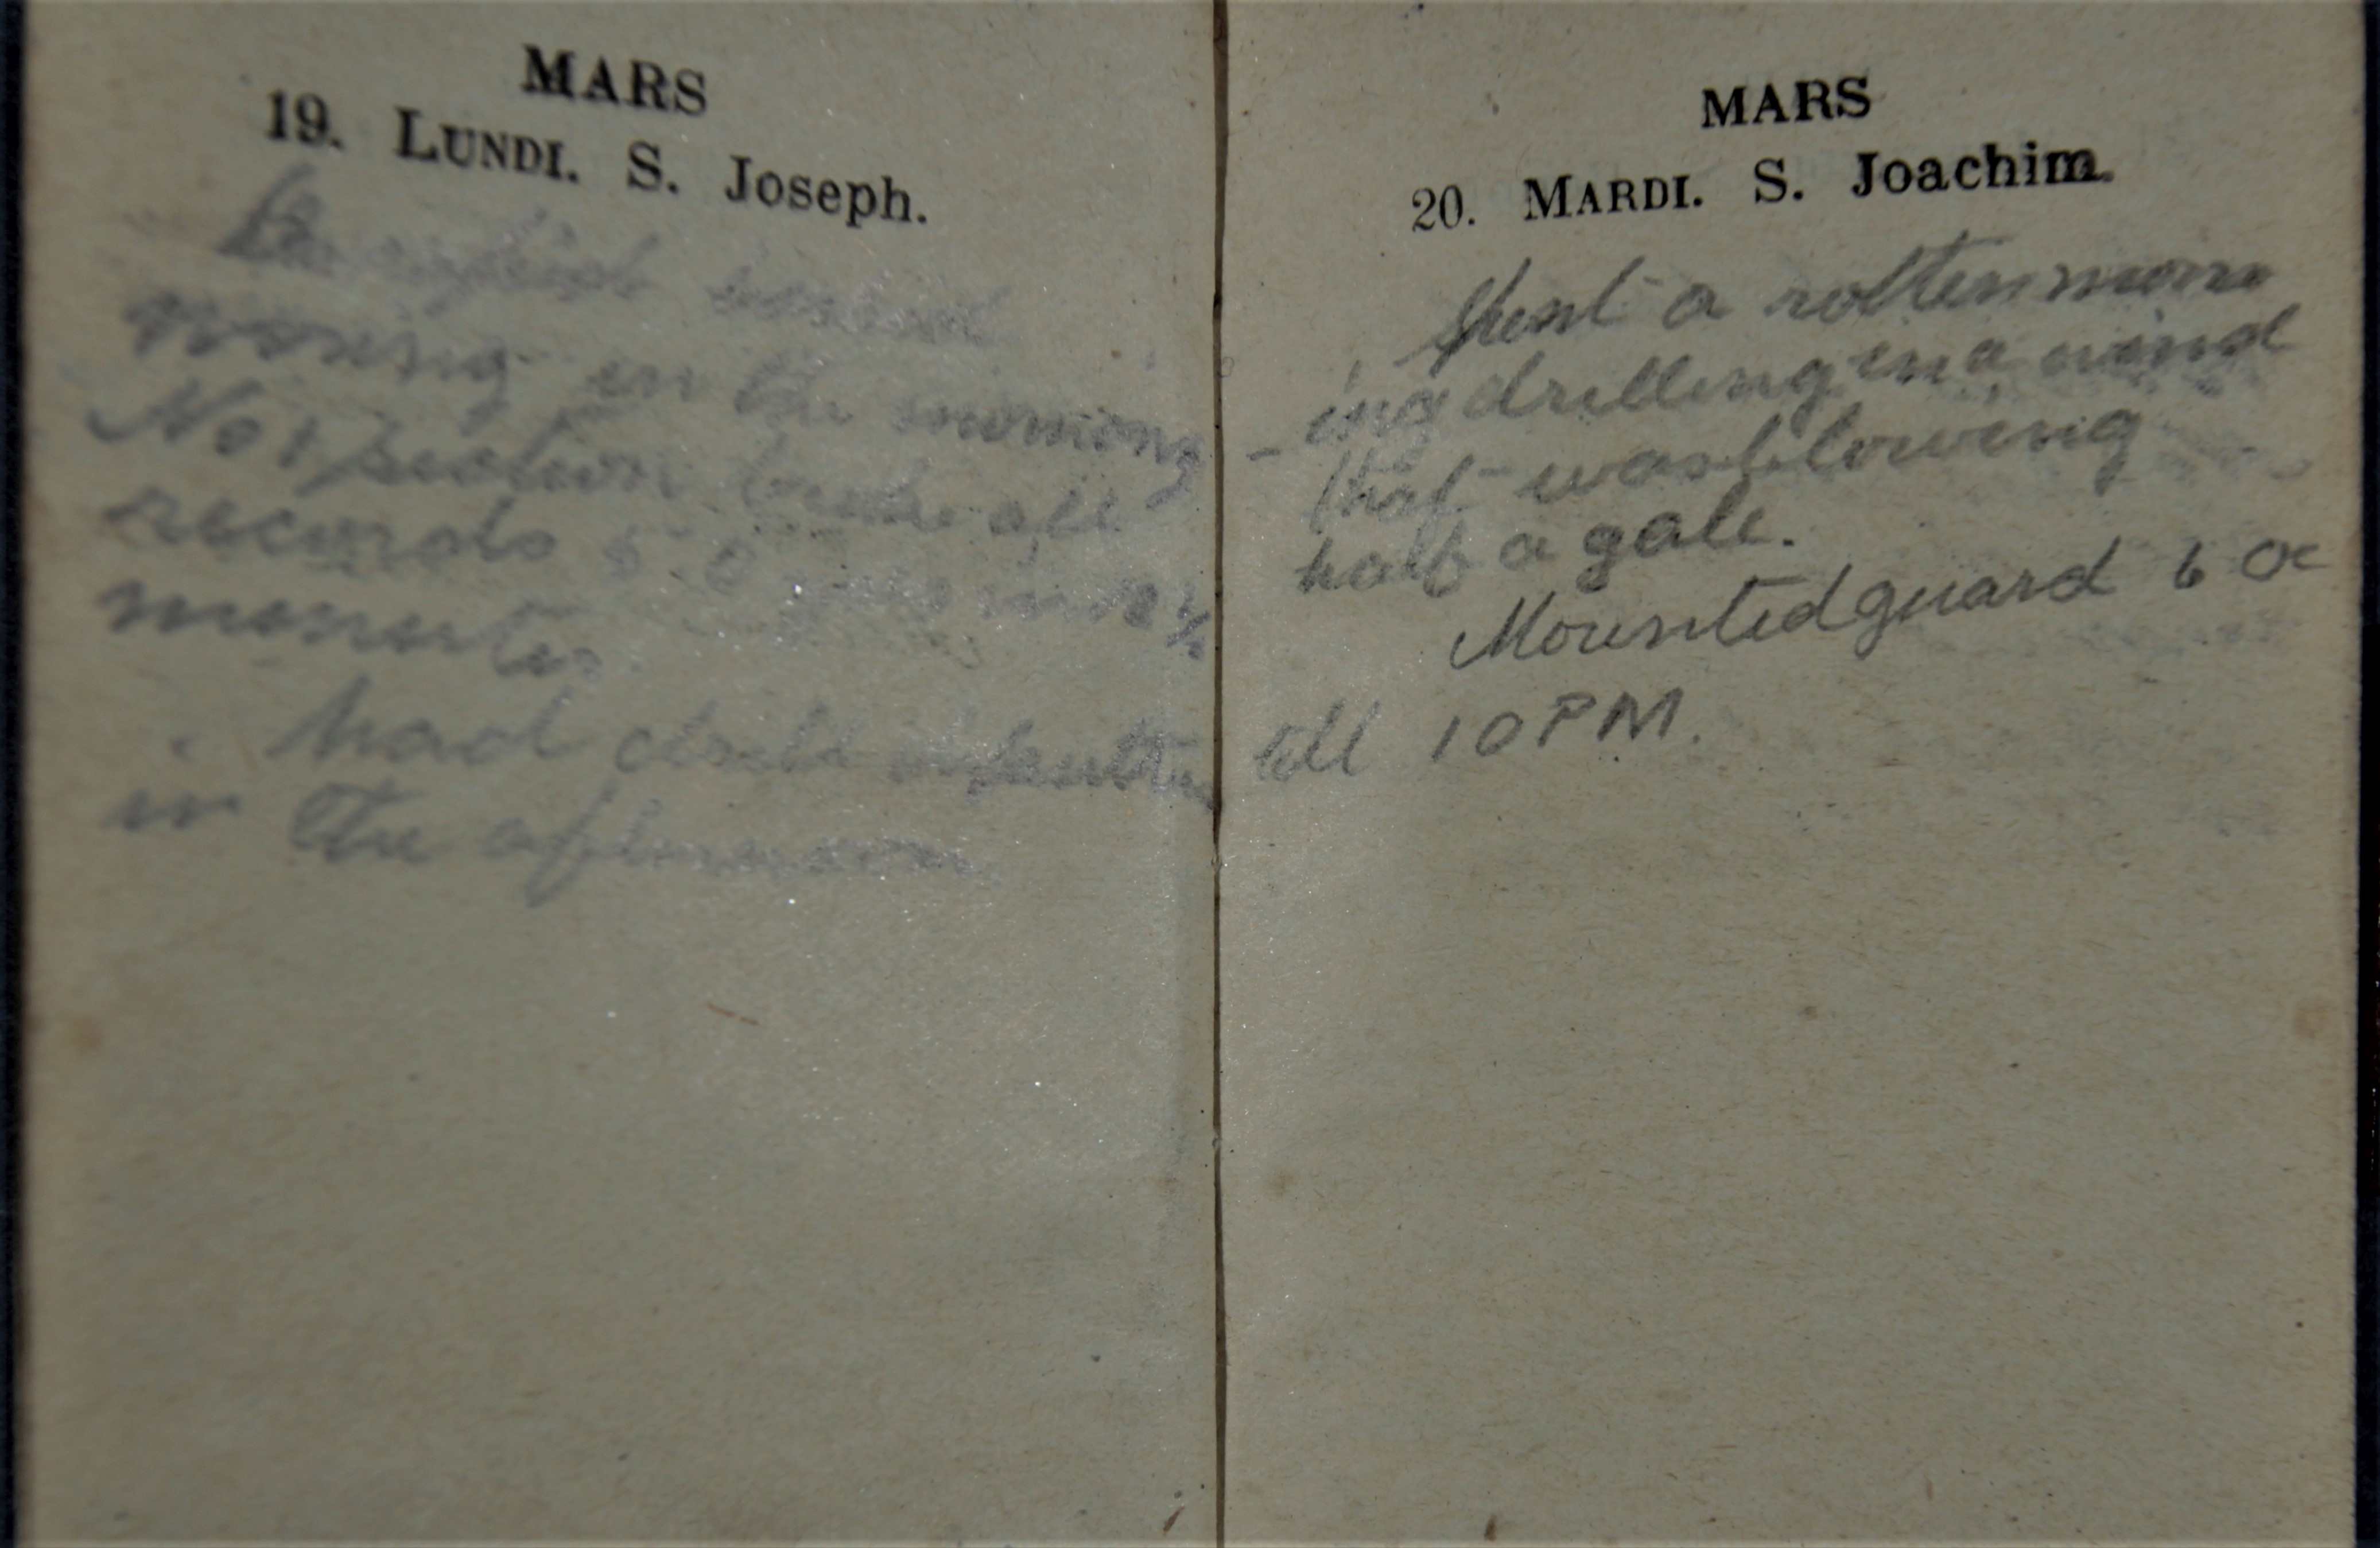 MARS
19. LUNDI. S. Joseph.
in the morning
No 1 section broke all
records
minutes
had drill
in the afternoon
MARS
20. MARDI. S. Joachim.
Spent a rotten morn
-ing drilling in a wind
that was blowing
half a gale.
Mounted guard 6 oc
till 10 PM.